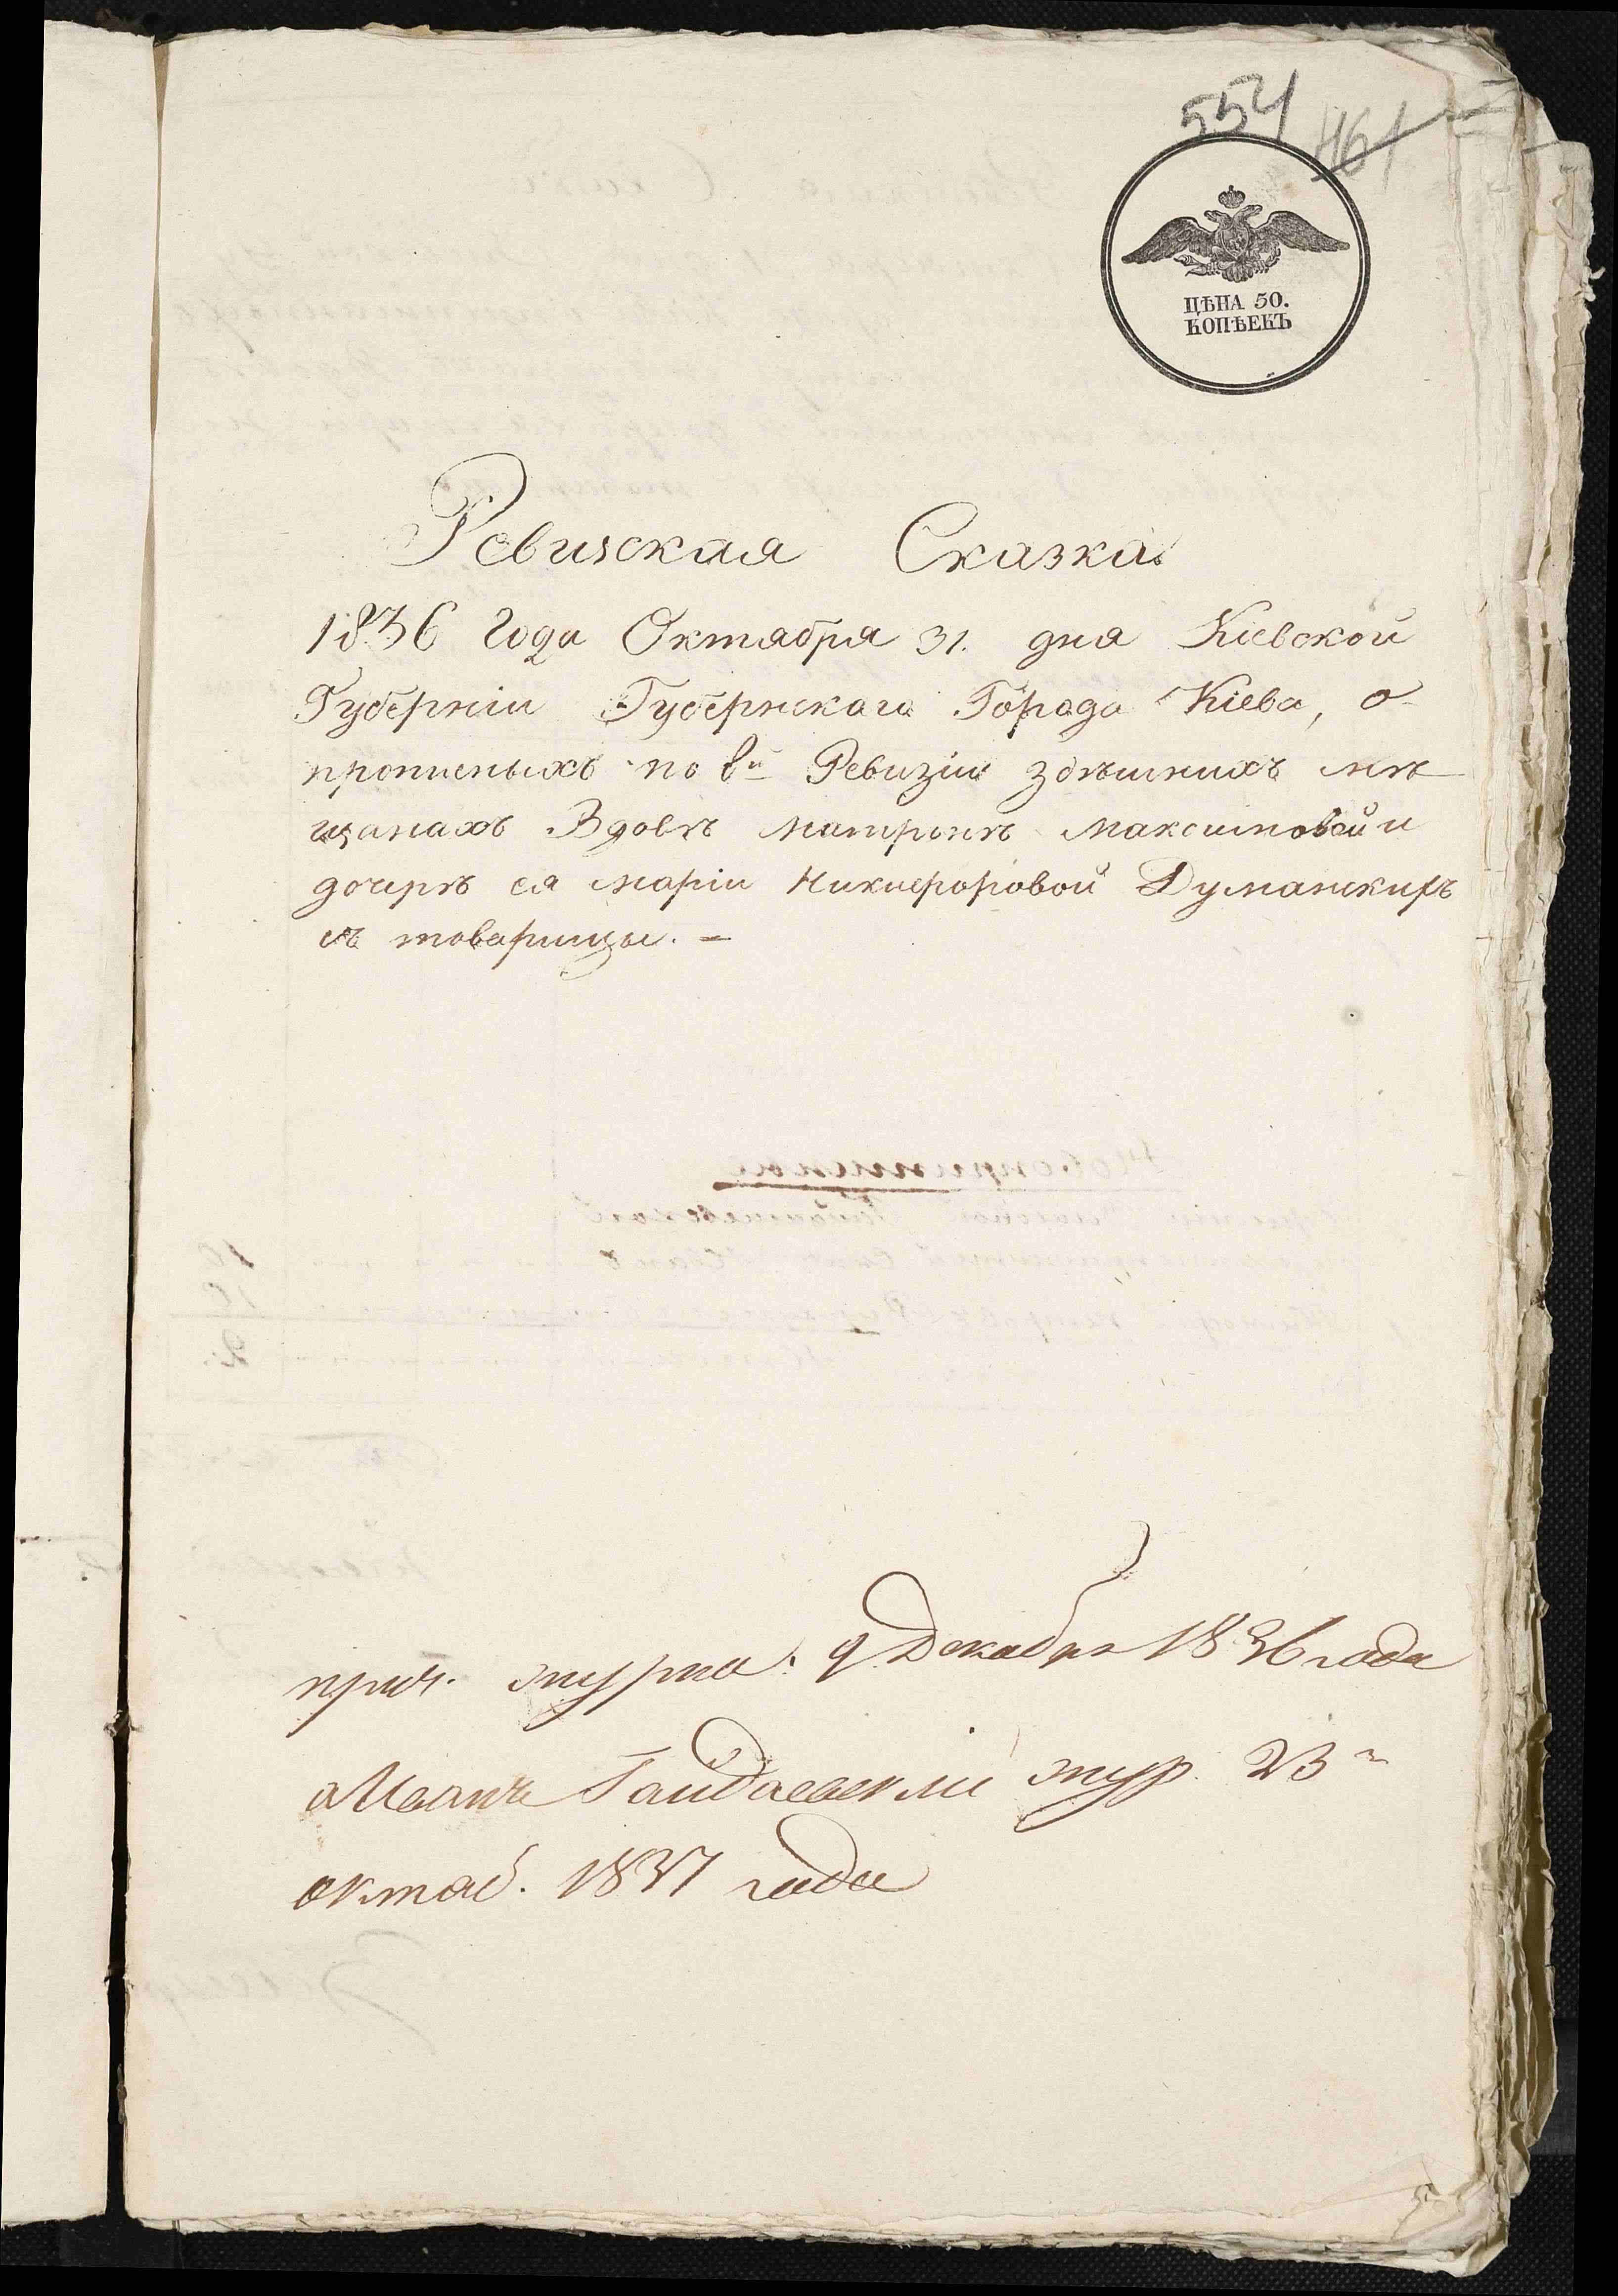 554 461
ЦѢНА 50.
КОПѢЕКЪ
Ревизская Сказка
1836 Года Октября 31. дня Кіевской
Губерніи Губернскаго Города Кіева, о
прописныхъ по 8й Ревизіи здѣшнихъ мѣ
щанахъ Вдовѣ Матронѣ Максимовой и
дочерѣ ея Маріи Никифоровой Думанскихъ
съ товарищы. –
прич. журна. 9 Декабря 1836 года
Иванъ Гайдаевскій жур. 23
октяб. 1837 года